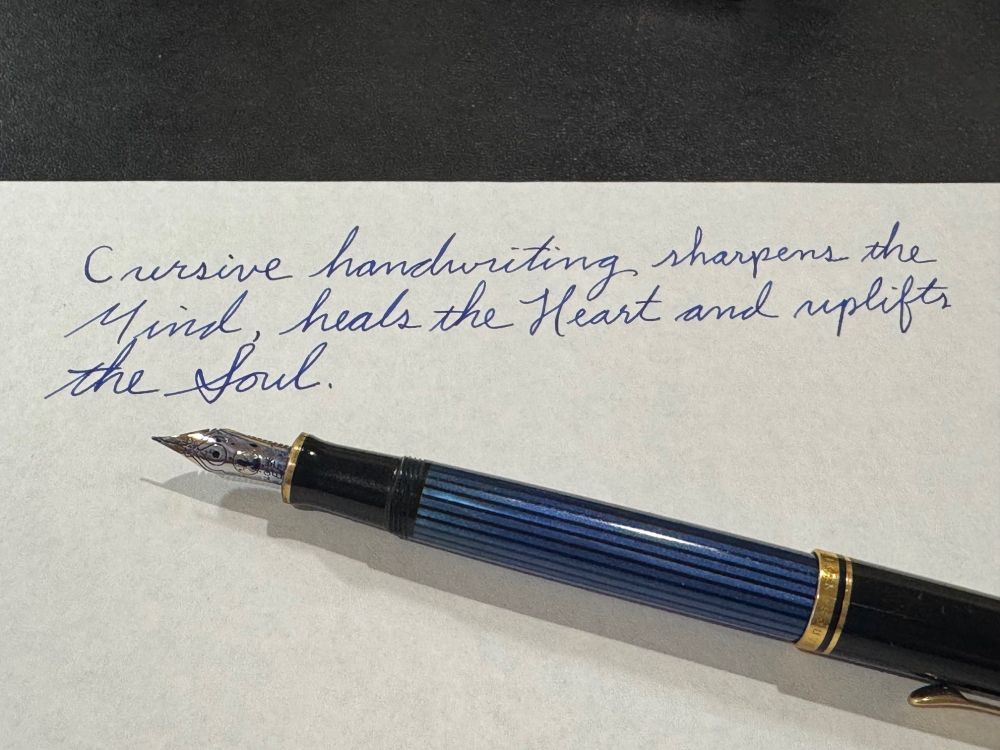 Cursive handwriting sharpens the
Mind, heals the Heart and uplifts
the Soul.